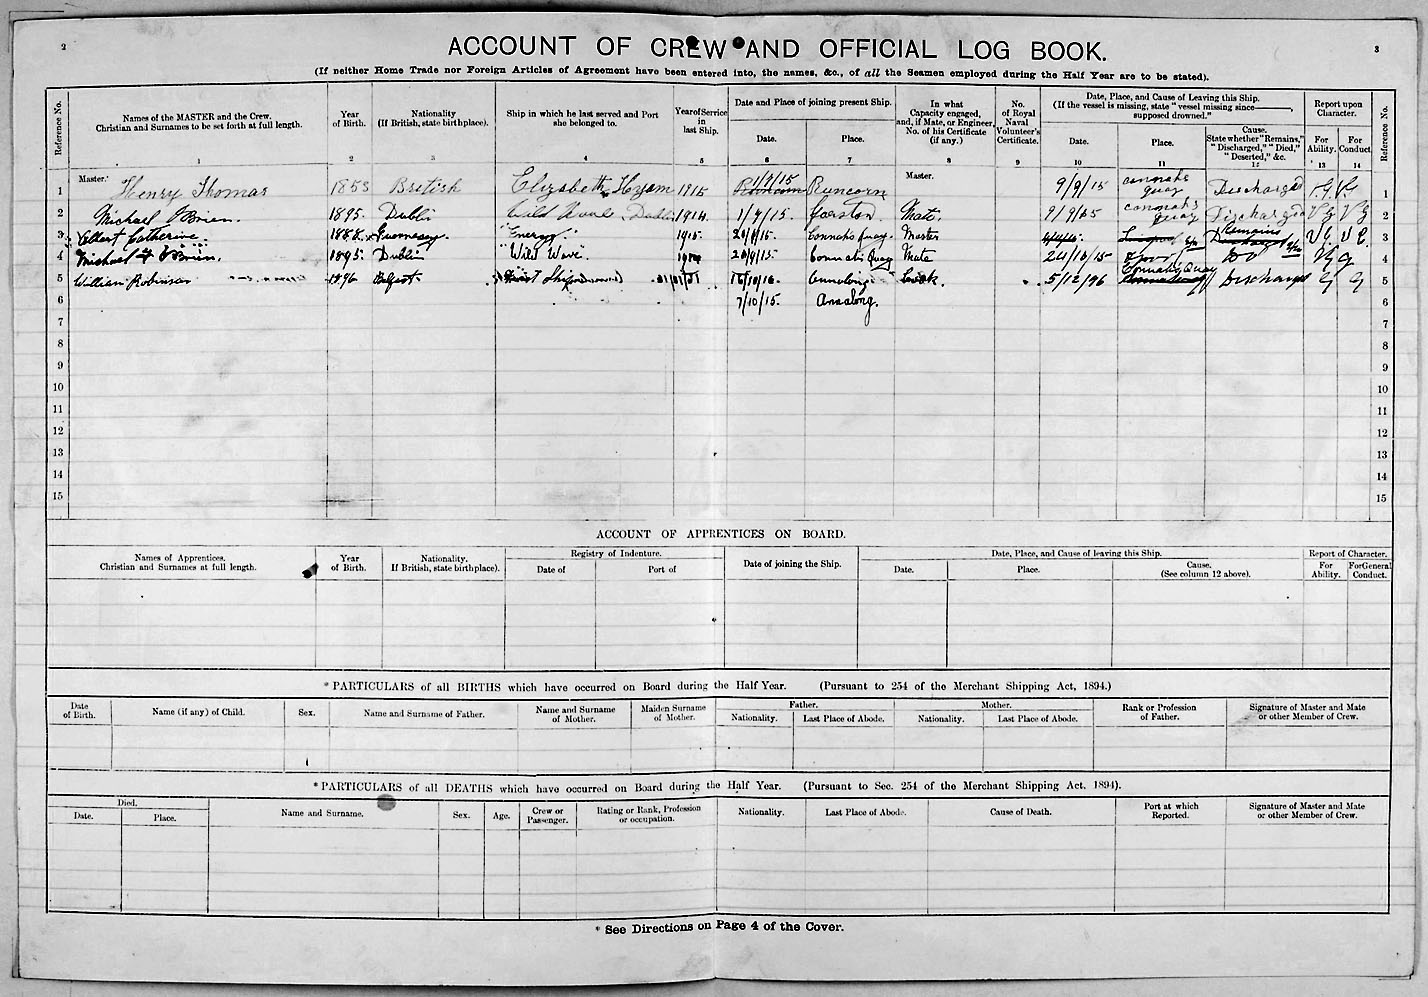 2
3
ACCOUNT OF CREW AND OFFICIAL LOG BOOK.
(If neither Home Trade nor Foreign Articles of Agreement have been entered into, the names, &c., of all the Seamen employed during the Half Year are to be stated).
Reference No.
Names of the MASTER and the Crew. Christian and Surnames to be set forth at full length.
Year of Birth.
Nationality (If British, state birthplace).
Ship in which he last served and Port she belonged to.
Year of Service in last Ship.
Date and Place of joining present Ship.
Date.
Place.
In what Capacity engaged, and, if Mate, or Engineer, No. of his Certificate (if any.)
No. of Royal Naval Volunteer's Certificate.
Date, Place, and Cause of Leaving this Ship. (If the vessel is missing, state "vessel missing since———, supposed drowned."
Date.
Place.
Cause. State whether "Remains," "Discharged," "Died," "Deserted," &c.
Report upon Character.
For Ability.
For Conduct
Reference No.
1 2 3 4 5 6 7 8 9 10 11 12 13 14
1 Master. Henry Thomas 1853 British Elizabeth Hyam 1915 1/7/15 Runcorn Runcorn Master. 9/9/15 connahs quay Discharged V.G. V.G 1
2 Michael O'Brien. 1895. Dublin Wild Wave Dublin 1914 1/7/15. Garston Mate. 9/9/15 connahs quay Discharged V G V G 2
3 Albert Catherine 1888 Guernsey. "Energy" 1915 Connahs Quay. Master Remains Discharged V G. 3
4 Michael O'Brien. 1895 Dublin "Wild Wave" 20/9/15 Connahs Quay Mate 24/10/15 Do V G 4
5 William Robinson 1896 Belfast First Ship 16/10/16 Annalong Cook. 5/12/96 Connahs Quay Discharged G G 5
6 7/10/15 Annalong. 6
7 7
8 8
9 9
10 10
11 11
12 12
13 13
14 14
15 15
ACCOUNT OF APPRENTICES ON BOARD.
Names of Apprentices. Christian and Surnames at full length.
Year of Birth.
Nationality. If British, state birthplace).
Registry of Indenture.
Date of
Port of
Date of joining the Ship.
Date, Place, and Cause of leaving this Ship.
Date.
Place.
Cause. (See column 12 above).
Report of Character.
For Ability.
For General Conduct.
*PARTICULARS of all BIRTHS which have occurred on Board during the Half Year. (Pursuant to 254 of the Merchant Shipping Act, 1894.)
Date of Birth.
Name (if any) of Child.
Sex.
Name and Surname of Father.
Name and Surname of Mother.
Maiden Surname of Mother.
Father.
Nationality.
Last Place of Abode.
Mother.
Nationality.
Last Place of Abode.
Rank or Profession of Father.
Signature of Master and Mate or other Member of Crew.
*PARTICULARS of all DEATHS which have occurred on Board during the Half Year. (Pursuant to Sec. 254 of the Merchant Shipping Act, 1894).
Died.
Date.
Place.
Name and Surname.
Sex.
Age.
Crew or Passenger.
Rating or Rank, Profession or occupation.
Nationality.
Last Place of Abode.
Cause of Death.
Port at which Reported.
Signature of Master and Mate or other Member of Crew.
* See Directions on Page 4 of the Cover.